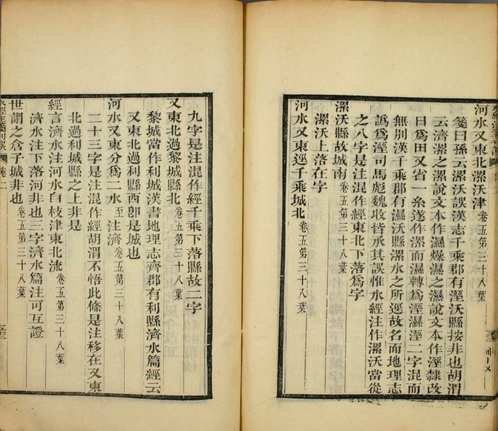 河水又東北漯沃津
箋曰孫云漯沃誤漢志千乘郡有溼沃縣按非也胡渭
云濟漯之漯說文本作濕燥濕之濕說文本作溼隸改
曰爲田又省一糸遂作漯而濕轉爲溼濕溼二字混而
無別漢千乘郡有濕沃縣漯水之所逕故名而地理志
作爲溼司馬彪魏收皆承其誤惟水經注作漯沃當從
之八字是注混作經東北下落爲字
漯沃縣故城南 卷五第三十八葉
漯沃上落在字
河水又東逕千乘城北 卷五第三十八葉
九字是注混作經千乘下落縣故二字
又東北過黎城縣北 卷五第三十八葉
黎城當作利城漢書地理志齊郡有利縣濟水篇經云
又東北過利縣西卽是城也
河水又東分爲二水 至 注濟 卷五第三十八葉
二十三字是注混作經胡渭不悟此條是注移在又東
北過利城縣之上非是
經言濟水注河水自枝津東北流 卷五第三十八葉
濟水注下落河非也三字濟水篇注可互證
世謂之含子城非也